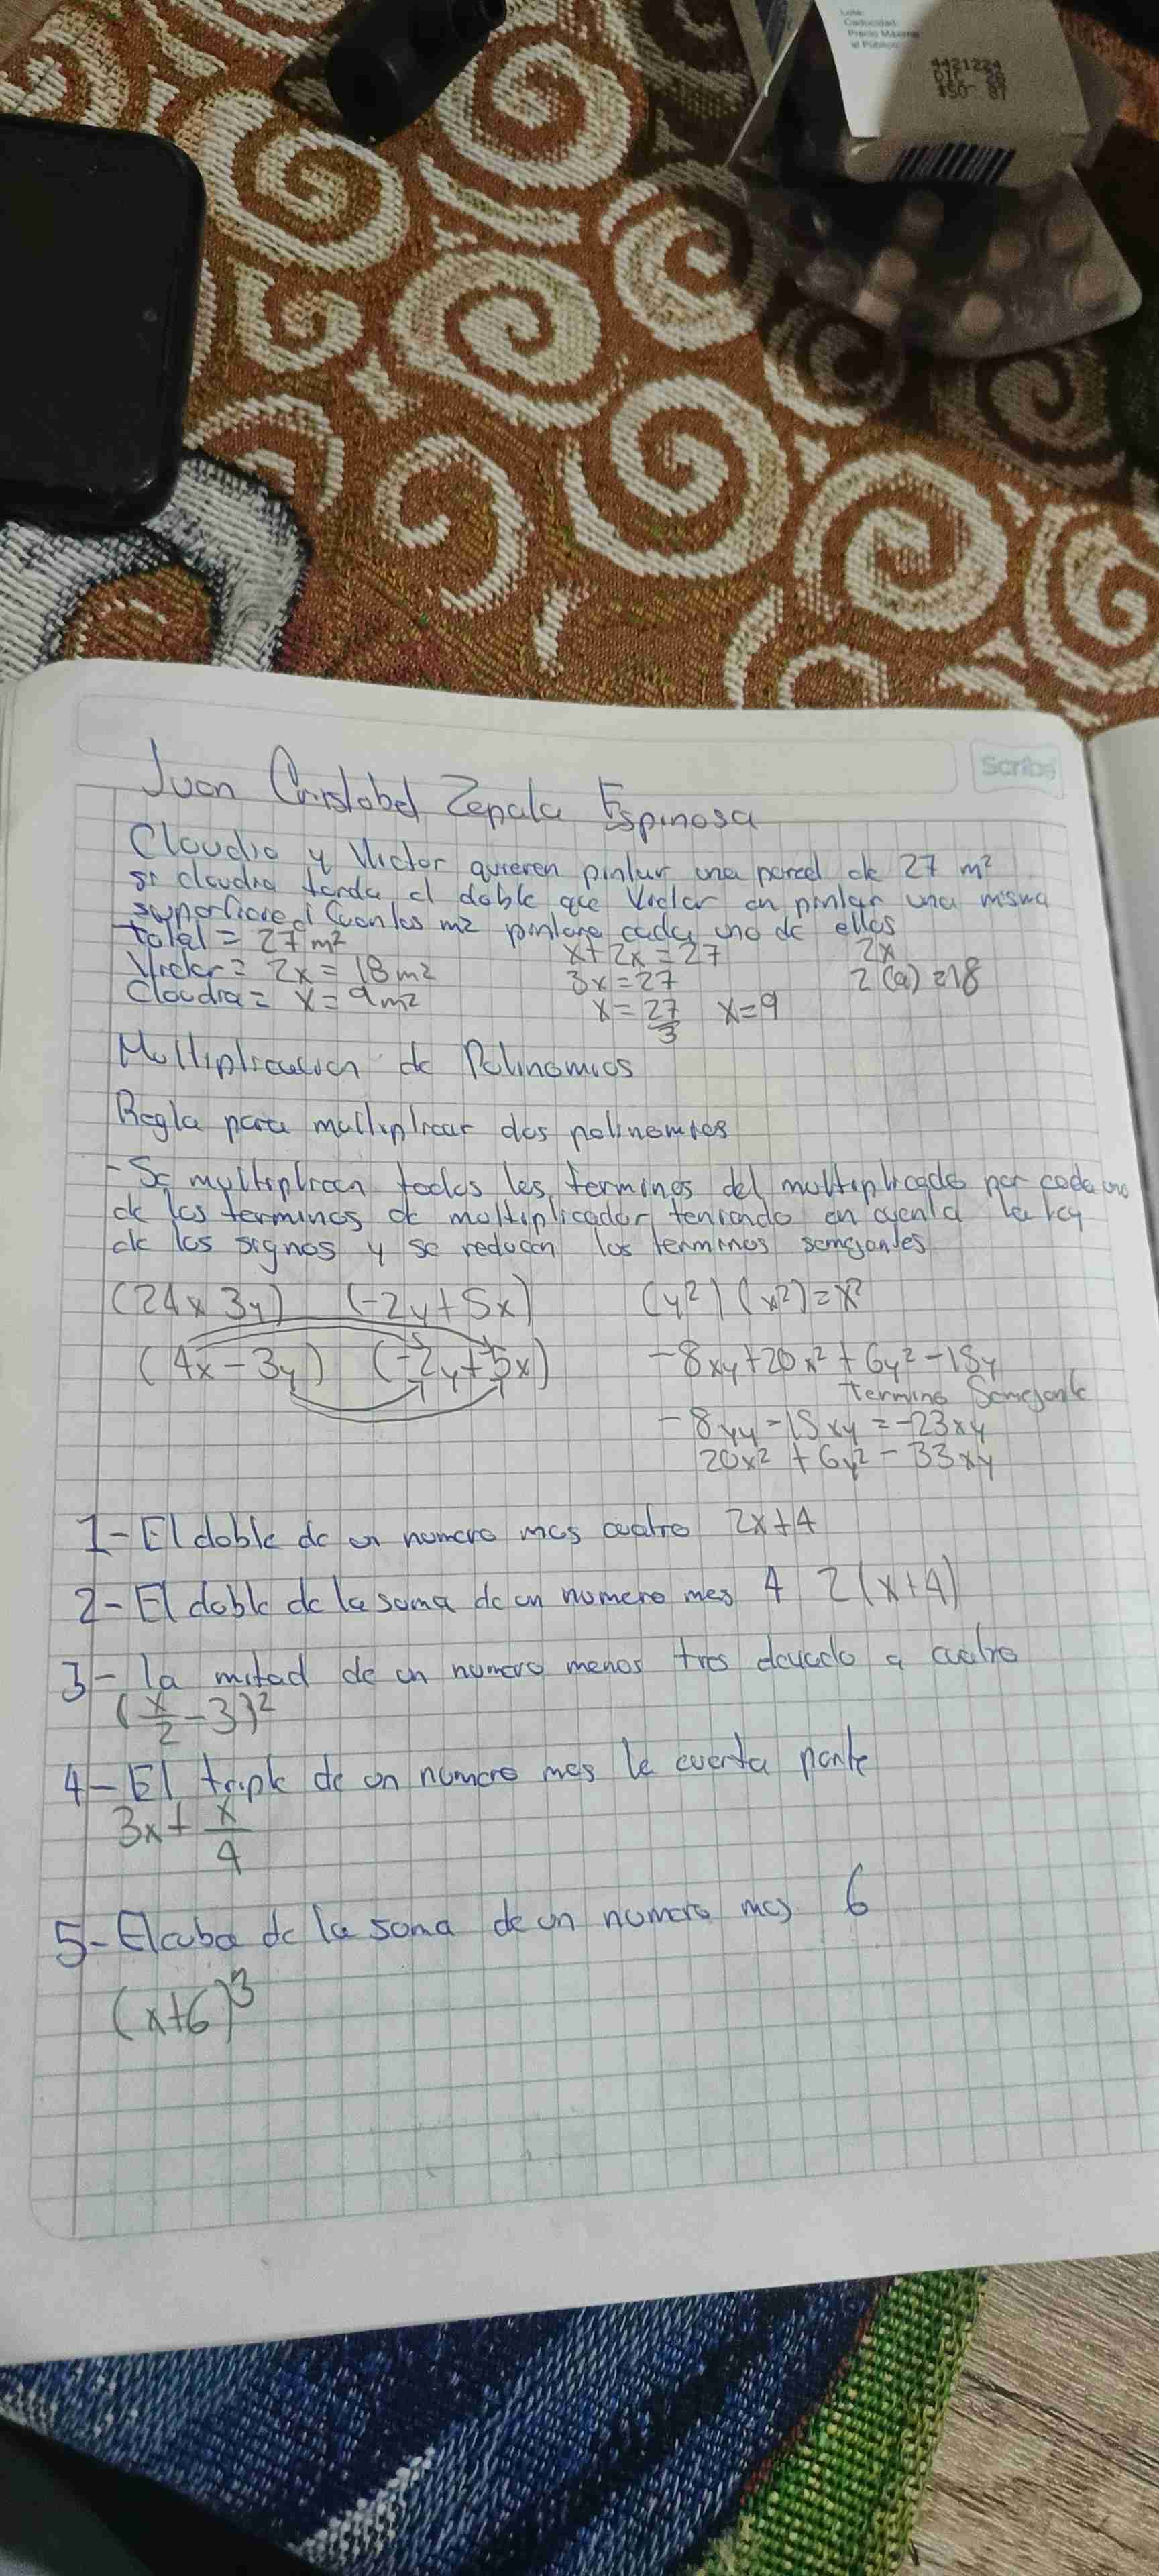 Lote:
Caducidad:
Precio Máximo
al Público:
4421224
DIC 26
450 87
Scribe
Juan Cristobal Zepala Espinosa
Claudia y Victor quieren pintar una pared de 27 m²
si claudia tarda el doble que Victor en pintar una misma
superficie ¿Cuantos m2 pintara cada uno de ellos
total = 27 m² x + 2x = 27 2x
Victor = 2x = 18 m2 3x = 27 2 (9) = 18
Claudia = x = 9 m2 x = 27/3 x = 9
Multiplicacion de Polinomios
Regla para multiplicar dos polinomios
- Se multiplican todos los terminos del multiplicado por cada uno
de los terminos de multiplicador teniendo en cuenta la ley
de los signos y se reducen los terminos semejantes
(24x 3y) (-2y + 5x) (y²) (x²) = x²
(4x - 3y) (-2y + 5x) -8xy + 20x² + 6y² - 15y
termino Semejante
-8yy - 15xy = -23xy
20x² + 6y² - 33xy
1- El doble de un numero mas cuatro 2x + 4
2- El doble de la suma de un numero mas 4 2 (x+4)
3- la mitad de un numero menos tres elevado a cuatro
(x/2 - 3)²
4- El triple de un numero mas la cuarta parte
3x + x/4
5- El cubo de la suma de un numero mas 6
(x+6)³